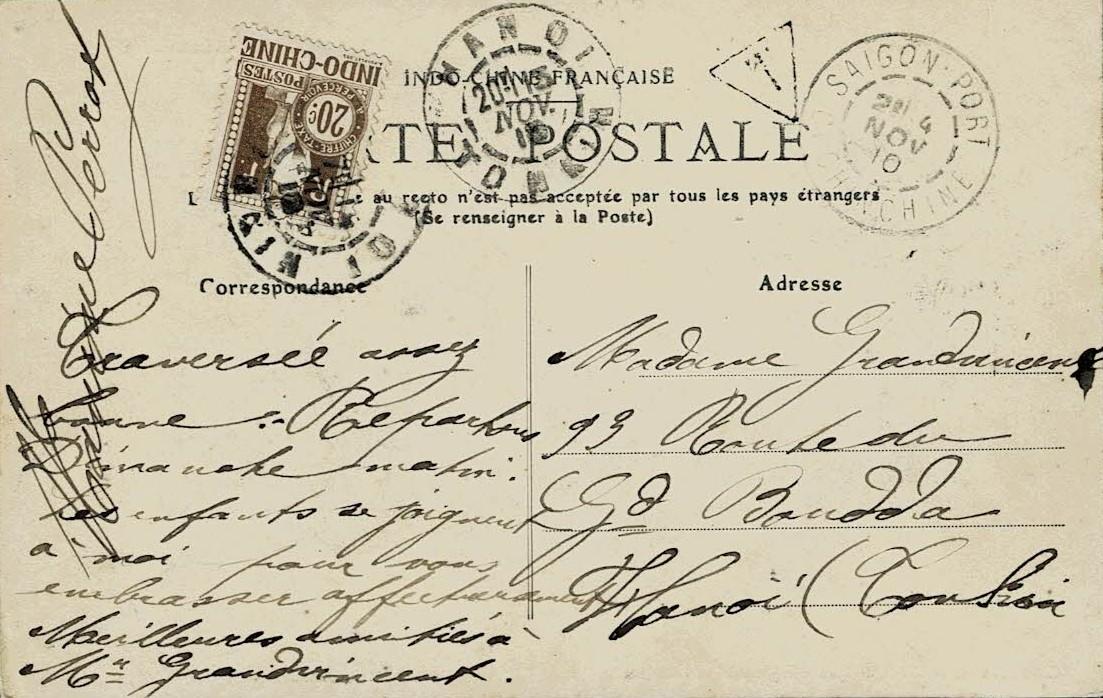 INDO-CHINE FRANÇAISE
CARTE POSTALE
au recto n'est pas acceptée par tous les pays étrangers
(Se renseigner à la Poste)
INDO-CHINE
POSTES
A PERCEVOIR
20c
CHIFFRE-TAXE
HANOI
20-11
NOV.
TONKIN
T
SAIGON-PORT
4
NOV
10
COCHINCHINE
Correspondance
Traversée assez
bonne :- Repartons
Dimanche matin.
Les enfants se joignent
à moi pour vous
embrasser affectueusement
Meilleures amitiés à
Mr Grandvincent.
Adresse
Madame Grandvincent
93 Route du
Gd Boudda
Hanoï (Tonkin